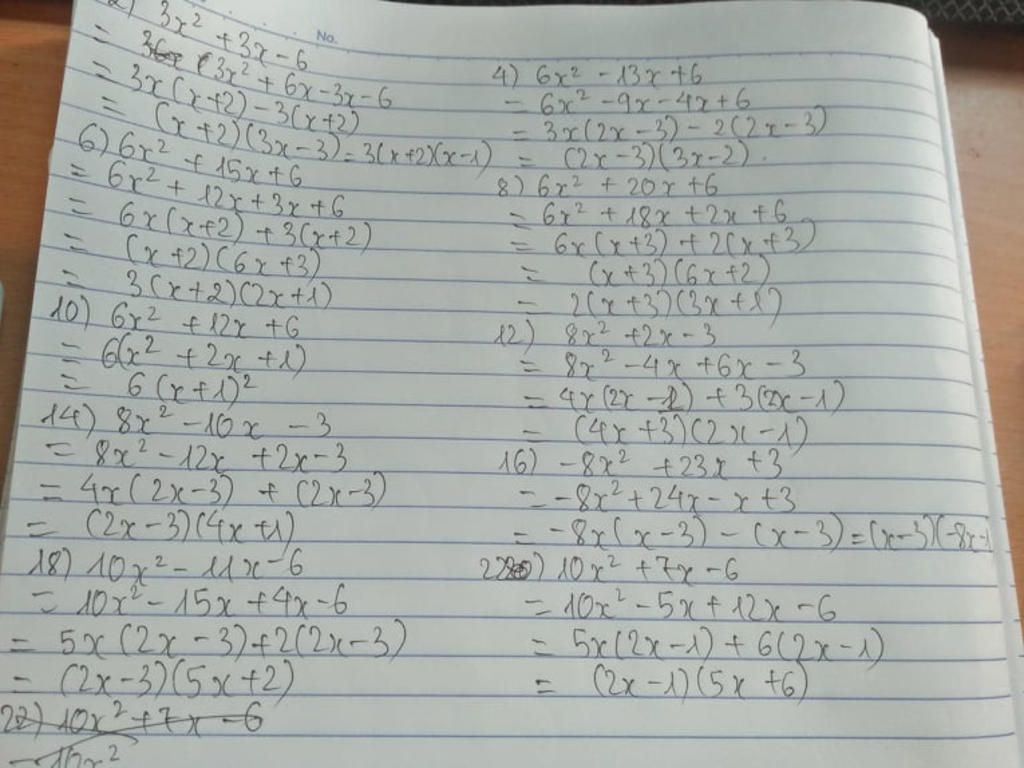 2) 3x² + 3x - 6
= 3x² + 6x - 3x - 6
= 3x(x+2) - 3(x+2)
= (x+2)(3x-3) = 3(x+2)(x-1)
6) 6x² + 15x + 6
= 6x² + 12x + 3x + 6
= 6x(x+2) + 3(x+2)
= (x+2)(6x+3)
= 3(x+2)(2x+1)
10) 6x² + 12x + 6
= 6(x² + 2x + 1)
= 6(x+1)²
14) 8x² - 10x - 3
= 8x² - 12x + 2x - 3
= 4x(2x-3) + (2x-3)
= (2x-3)(4x+1)
18) 10x² - 11x - 6
= 10x² - 15x + 4x - 6
= 5x(2x-3) + 2(2x-3)
= (2x-3)(5x+2)
22) 10x² + 7x - 6
- 10x²
No.
4) 6x² - 13x + 6
= 6x² - 9x - 4x + 6
= 3x(2x-3) - 2(2x-3)
= (2x-3)(3x-2).
8) 6x² + 20x + 6
= 6x² + 18x + 2x + 6
= 6x(x+3) + 2(x+3)
= (x+3)(6x+2)
= 2(x+3)(3x+1)
12) 8x² + 2x - 3
= 8x² - 4x + 6x - 3
= 4x(2x-1) + 3(2x-1)
= (4x+3)(2x-1)
16) -8x² + 23x + 3
= -8x² + 24x - x + 3
= -8x(x-3) - (x-3) = (x-3)(-8x-1)
22) 10x² + 7x - 6
= 10x² - 5x + 12x - 6
= 5x(2x-1) + 6(2x-1)
= (2x-1)(5x+6)